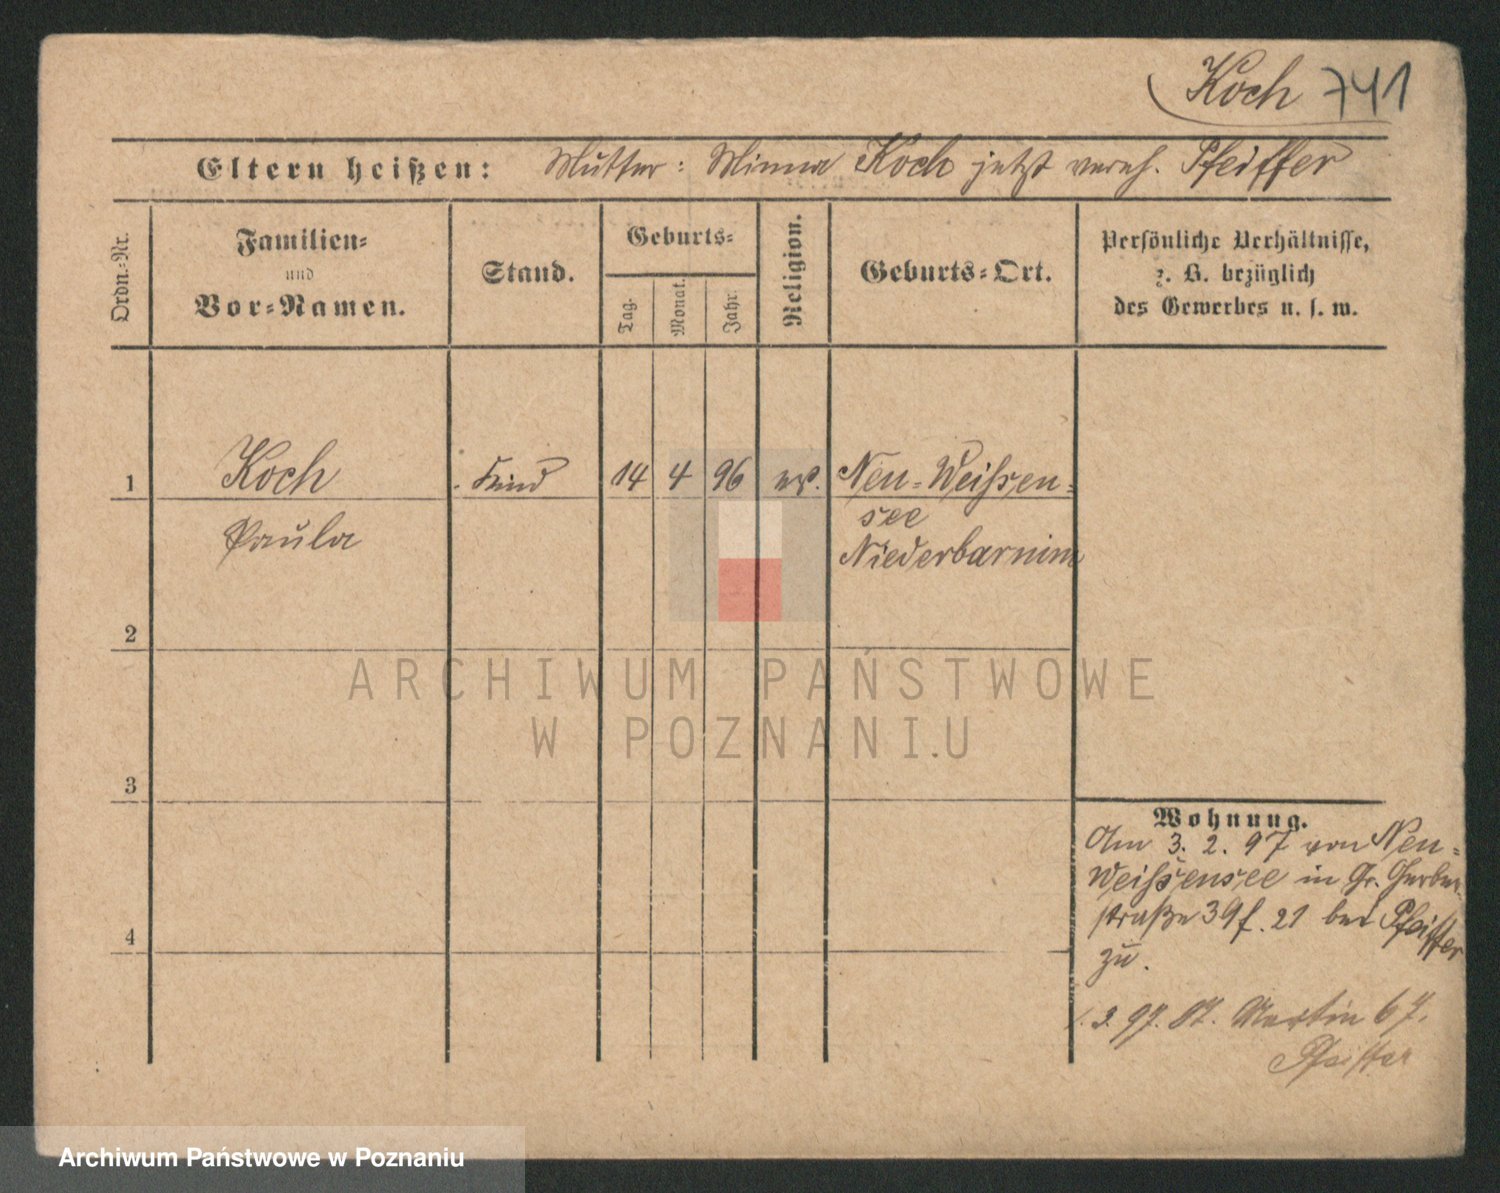 Koch 741
Eltern heißen: Mutter: Minna Koch jetzt vereh. Pfeiffer
Ordn.-Nr.
Familien-
und
Vor-Namen.
Stand.
Geburts-
Tag.
Monat.
Jahr.
Religion.
Geburts-Ort.
Persönliche Verhältnisse,
z. B. bezüglich
des Gewerbes u. s. w.
1 Koch Kind 14 4 96 ev. Neu-Weißen-
see
Paula
Niederbarnim
2
3
4
Wohnung.
Am 3. 2. 97 von Neu-
Weißensee in Gr. Gerber
straße 39 f. 21 bei Pfeiffer
zu.
97. St. Martin 67.
Pfeiffer
ARCHIWUM PAŃSTWOWE
W POZNANIU
Archiwum Państwowe w Poznaniu